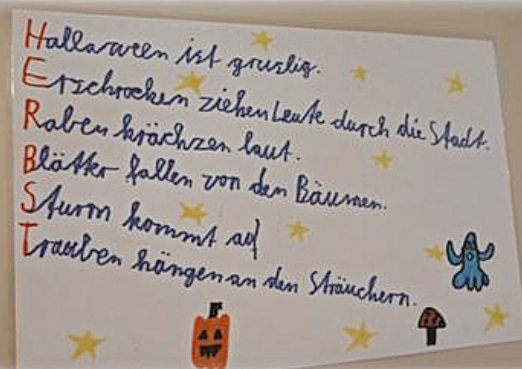 Halloween ist gruslig.
Erschrocken ziehen Leute durch die Stadt.
Raben krächzen laut.
Blätter fallen von den Bäumen.
Sturm kommt auf
Trauben hängen an den Sträuchern.